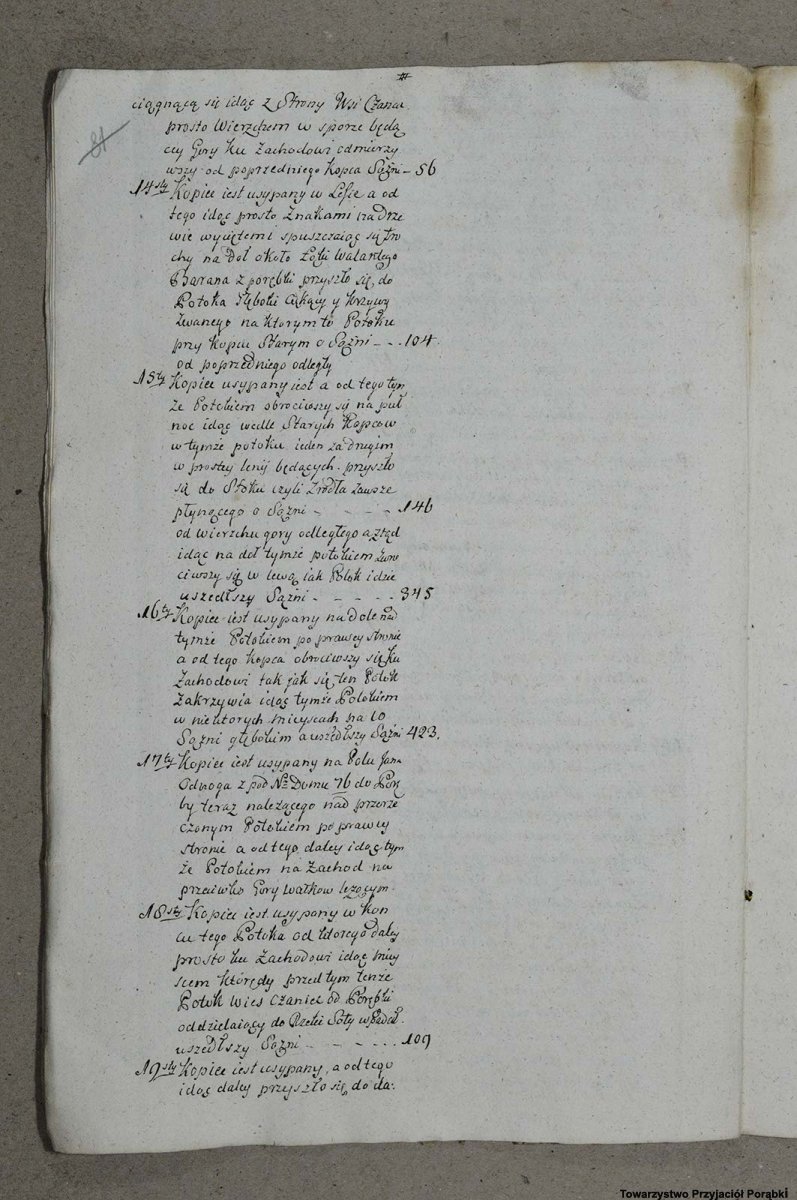 #
81
ciągnącą się idąc z Strony Wsi Czańca
prosto Wierzchem w sporze będą
cey Gory ku Zachodowi odmierzy
wszy od poprzedniego Kopca Sążni – 56
14sty Kopiec iest usypany w Lesie a od
tego idąc prosto Znakami na Drze
wie wyciętemi spuszczaiąc się tro
chy na doł około Łąki Walantego
Barana z porębki przyszło się do
Potoka Głęboki Ciekący y Krzywy
Zwanego na ktorym to Potoku
przy Kopcu Starym o Sążni – – 104
od poprzedniego odległy
15ty Kopiec usypany iest a od tego tym
że Potokiem obrociwszy się na puł
noc idąc wedle Starych Kopcow
w tymże potoku ieden za drugim
w prostey lenij będących przyszło
się do Stoku czyli Zrodła zawsze
płynącego o Sążni – – – – 146
od wierzchu gory odległego a ztąd
idąc na doł tymże potokiem zwro
ciwszy się w lewą iak Potok idzie
uszedłszy Sążni – – – – 345
16ty Kopiec iest usypany na dole nad
tymże Potokiem po prawey stronie
a od tego kopca obrociwszy się ku
Zachodowi tak jak się ten Potok
Zakrzywia idąc tymże Potokiem
w niektorych mieyscach na 10
Sążni głębokim a uszedłszy Sążni 423.
17ty Kopiec iest usypany na Polu Jana
Odroga z pod No Domu 76 do Porę
by teraz należącego nad przerze
czonym Potokiem po prawey
stronie a od tego daley idąc tym
że Potokiem na Zachod na
przeciwko Gory Wałkow leżącym
18sty Kopiec iest usypany w Kon
cu tego Potoka od ktorego daley
prosto ku Zachodowi idąc miey
scem którędy przed tym tenże
Potok Wies Czaniec od Porębki
oddzielaiący do Rzeki Soły wpadał
uszedłszy Sążni – – – – 109
19sty Kopiec iest usypany, a od tego
idąc daley przyszło się do da:
Towarzystwo Przyjaciół Porąbki